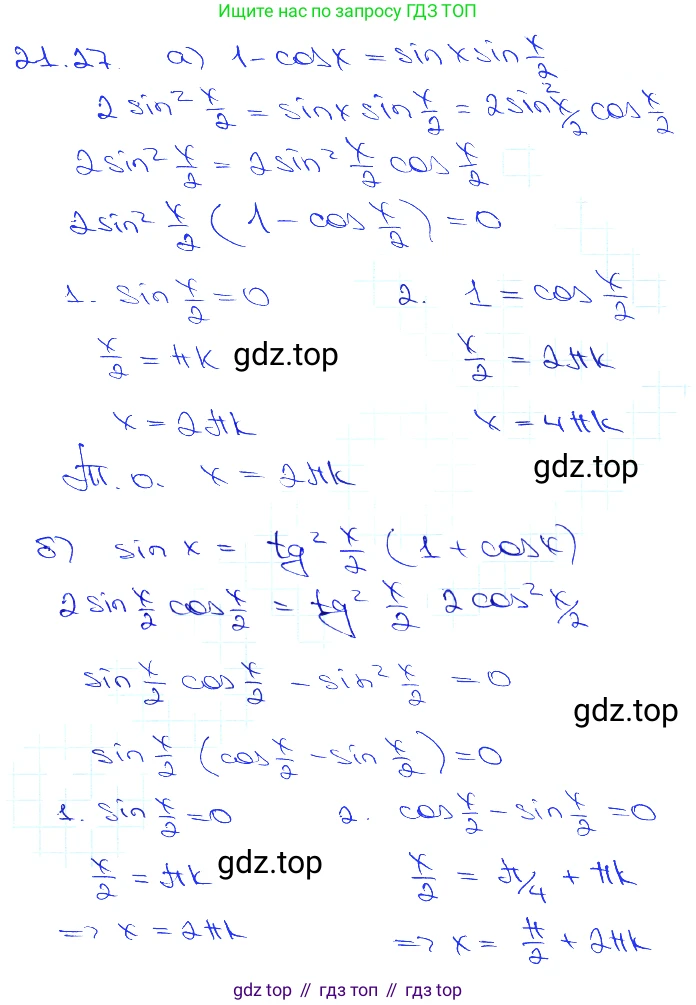 Ищите нас по запросу ГДЗ ТОП
21.27. а) 1 - cos x = sin x sin x/2
2 sin² x/2 = sin x sin x/2 = 2 sin² x/2 cos x/2
2 sin² x/2 = 2 sin² x/2 cos x/2
2 sin² x/2 (1 - cos x/2) = 0
1. sin x/2 = 0 2. 1 = cos x/2
x/2 = πk gdz.top x/2 = 2πk
x = 2πk x = 4πk
Т.о. x = 2πk gdz.top
б) sin x = tg² x/2 (1 + cos x)
2 sin x/2 cos x/2 = tg² x/2 2 cos² x/2
sin x/2 cos x/2 - sin² x/2 = 0
gdz.top
sin x/2 (cos x/2 - sin x/2) = 0
1. sin x/2 = 0 2. cos x/2 - sin x/2 = 0
x/2 = πk gdz.top x/2 = π/4 + πk
=> x = 2πk => x = π/2 + 2πk
gdz.top // гдз топ // гдз.top